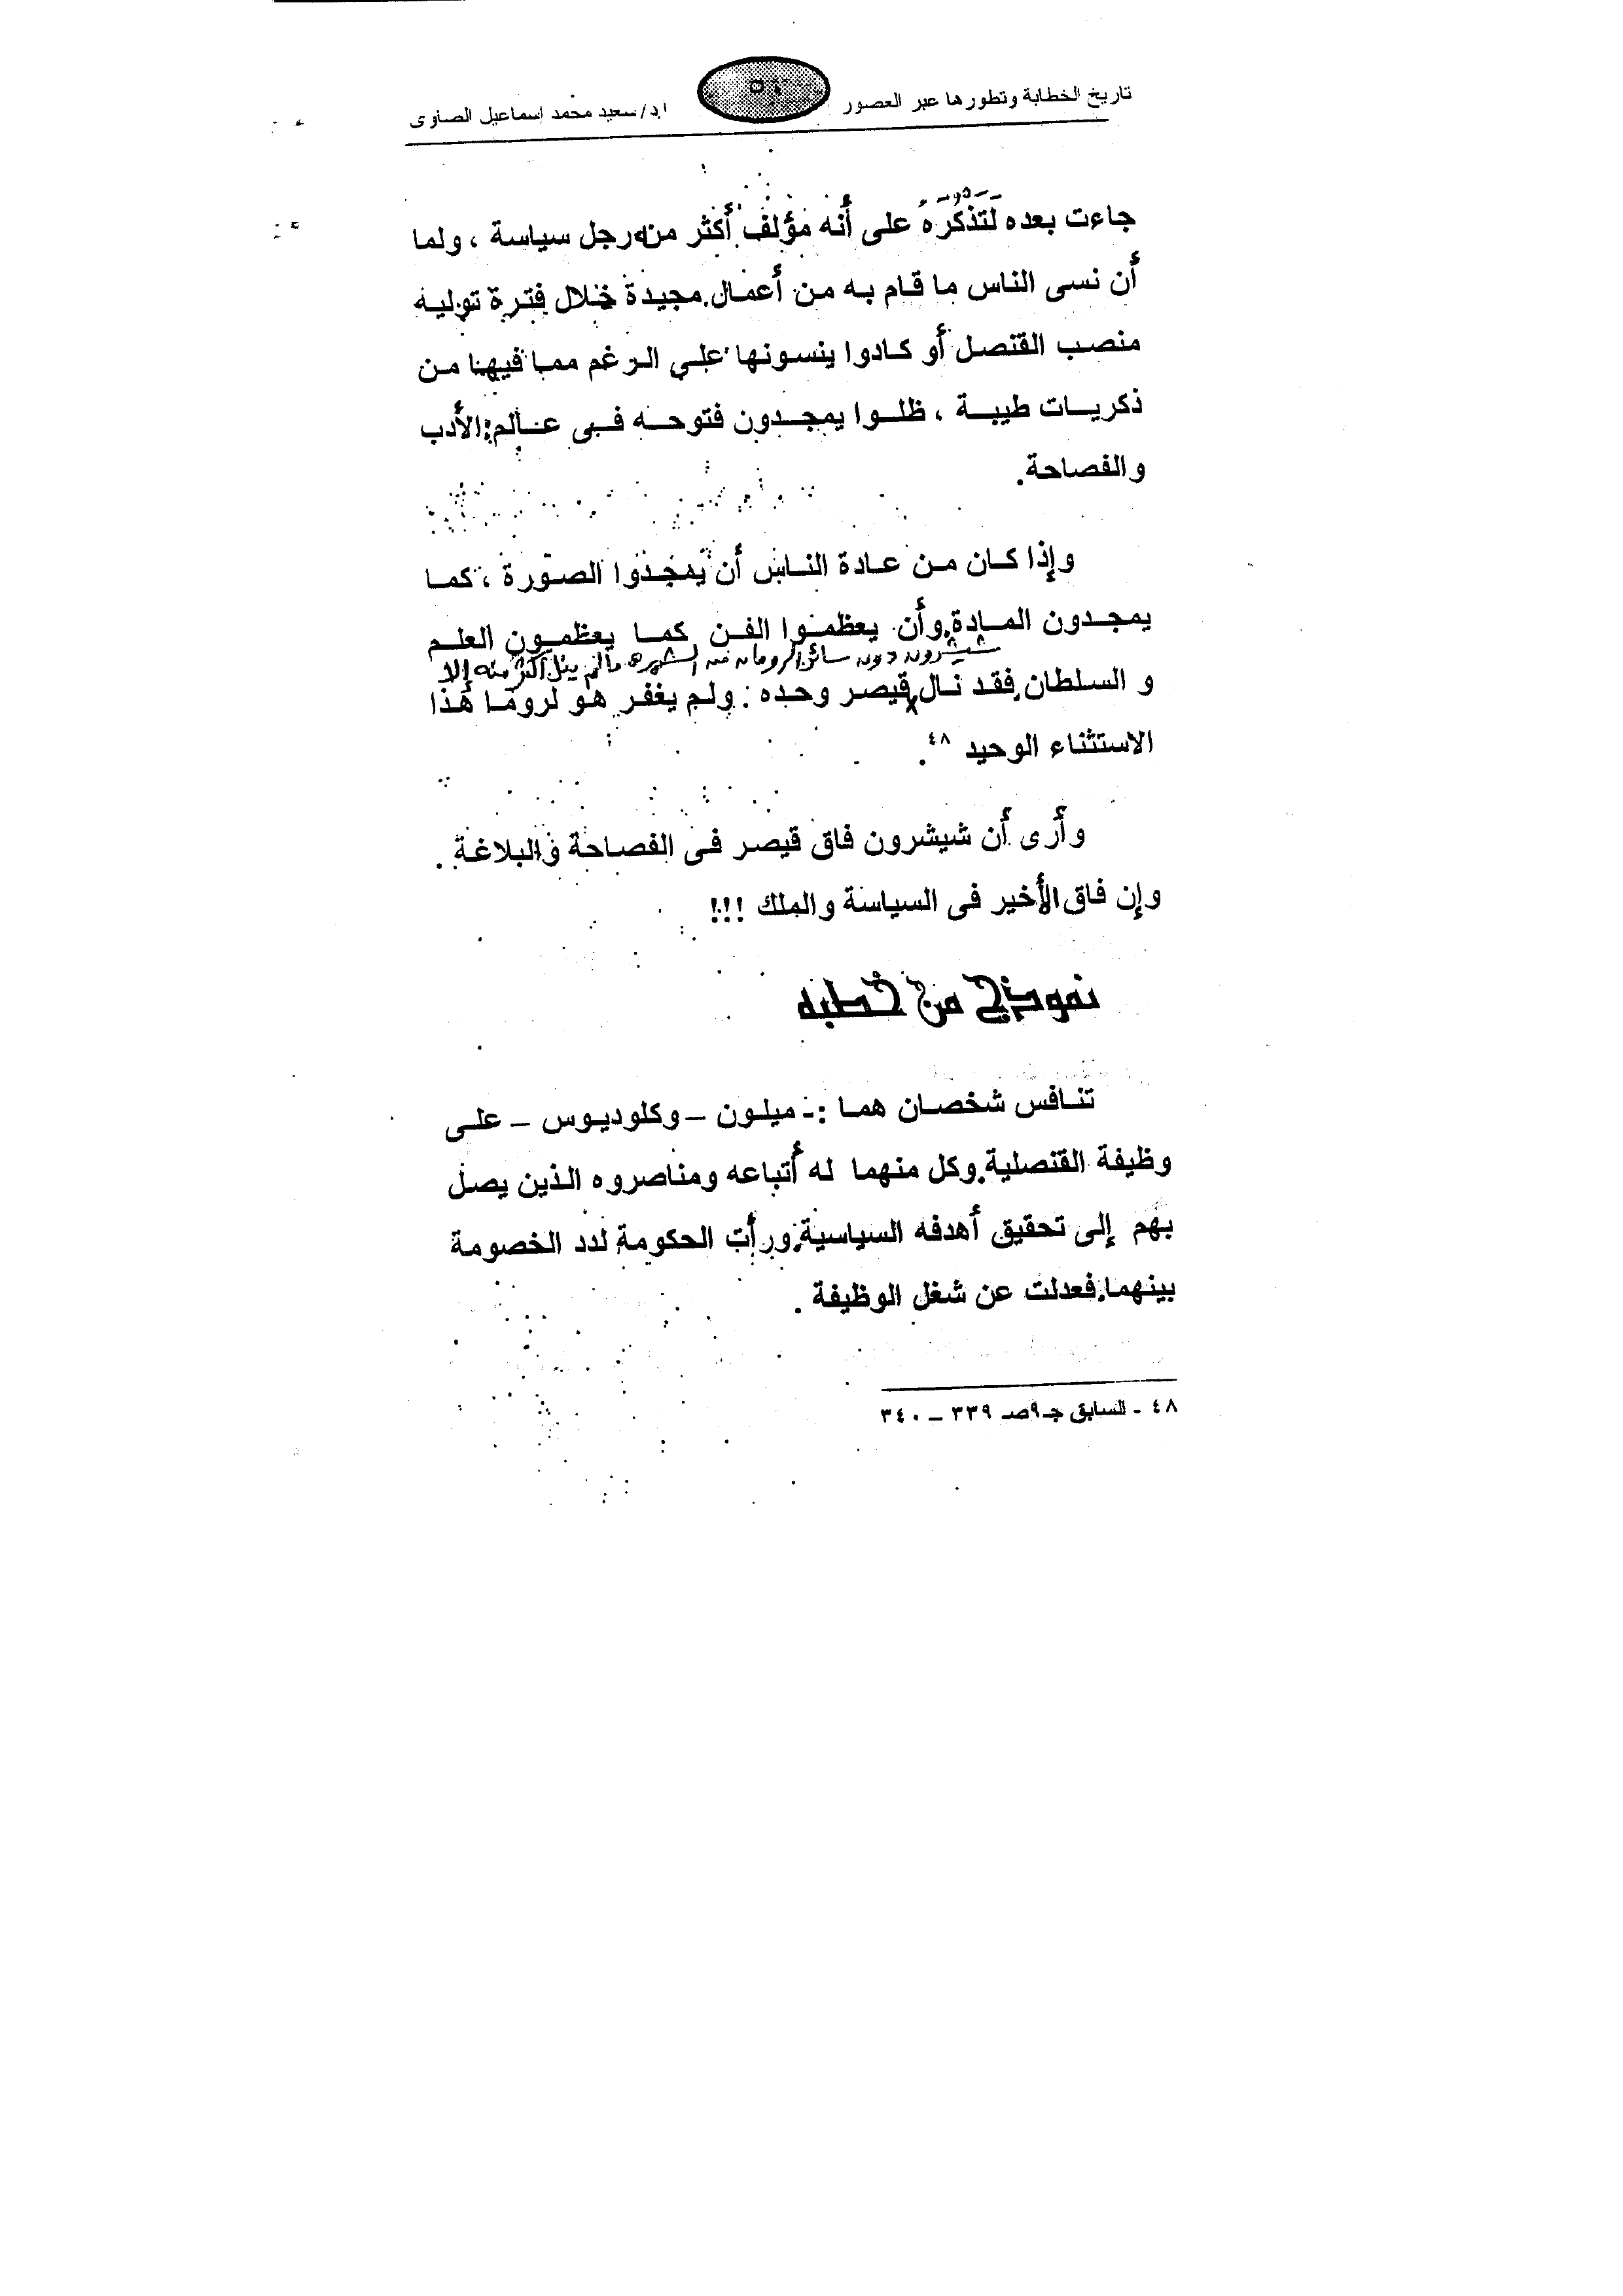 تاريخ الخطابة وتطورها عبر العصور
ا.د/سعيد محمد اسماعيل الصاوى
جاءت بعده لَتَذكُرَهُ على أنه مؤلف أكثر من رجل سياسة ، ولما
أن نسى الناس ما قام به من أعمال مجيدة خلال فترة توليه
منصب القنصل أو كادوا ينسونها على الرغم مما فيها من
ذكريات طيبة ، ظلوا يمجدون فتوحه فى عالم الأدب
والفصاحة.
وإذا كان من عادة الناس أن يمجدوا الصورة ، كما
يمجدون المادة وأن يعظموا الفن كما يعظمون العلم
شيشرون دون سائر الرومان من الشهرة مالم ينل أكثر منه إلا
و السلطان فقد نال قيصر وحده . ولم يغفر هو لروما هذا
الاستثناء الوحيد ٤٨ .
وأرى أن شيشرون فاق قيصر فى الفصاحة والبلاغة .
وإن فاق الأخير فى السياسة والملك !!!
نموذج من خطبه
تنافس شخصان هما :ـ ميلون – وكلوديوس – على
وظيفة القنصلية وكل منهما له أتباعه ومناصروه الذين يصل
بهم إلى تحقيق أهدفه السياسية ورأت الحكومة لدد الخصومة
بينهما فعدلت عن شغل الوظيفة .
٤٨ - السابق جـ٩صـ ٣٣٩ – ٣٤٠